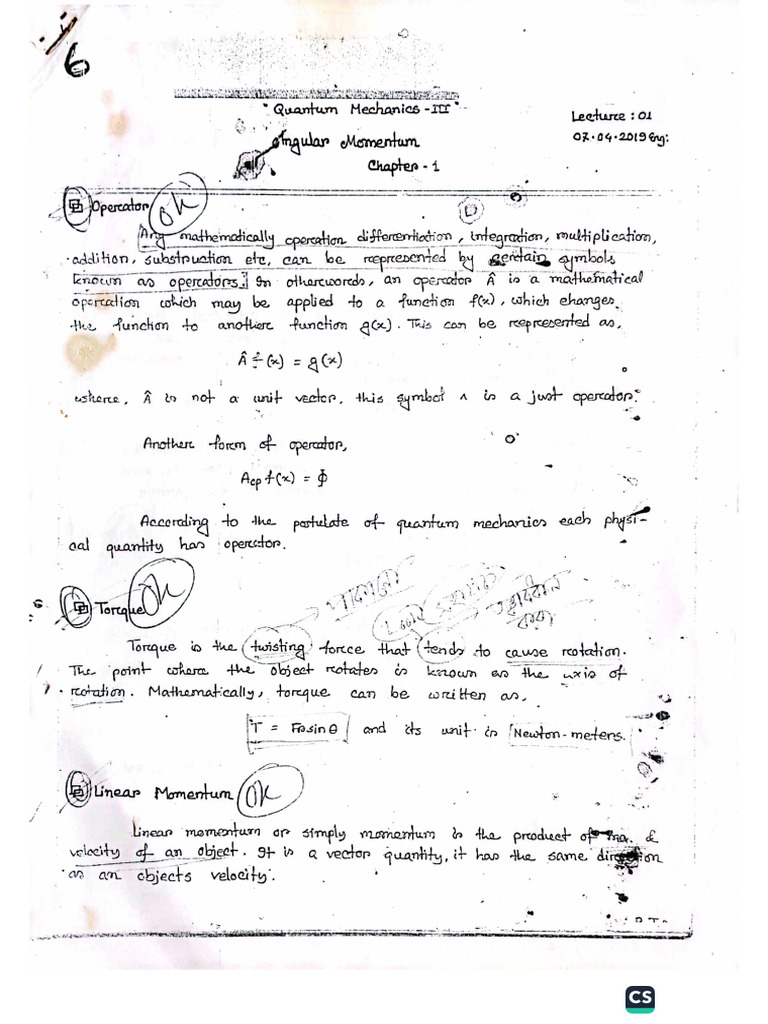 6
"Quantum Mechanics -III"
Lecture : 01
Angular Momentum
07.04.2019 Eng:
Chapter - 1
Operator
OK
Any mathematically operation differentiation, integration, multiplication,
addition, substruction etc, can be represented by certain symbols
known as operators. In otherwords, an operator Â is a mathematical
operation which may be applied to a function f(x), which changes
the function to another function g(x). This can be represented as,
Â f(x) = g(x)
where, Â is not a unit vector, this symbol ∧ is a just operator.
Another form of operator,
Aop f(x) = ϕ
According to the postulate of quantum mechanics each physi-
cal quantity has operator.
Torque
OK
Torque is the twisting force that tends to cause rotation.
The point where the object rotates is known as the axis of
rotation. Mathematically, torque can be written as,
T = Frsinθ and its unit is Newton-meters.
Linear Momentum
OK
Linear momentum or simply momentum is the product of &
velocity of an object. It is a vector quantity, it has the same direction
as an objects velocity.
P.T.
CS